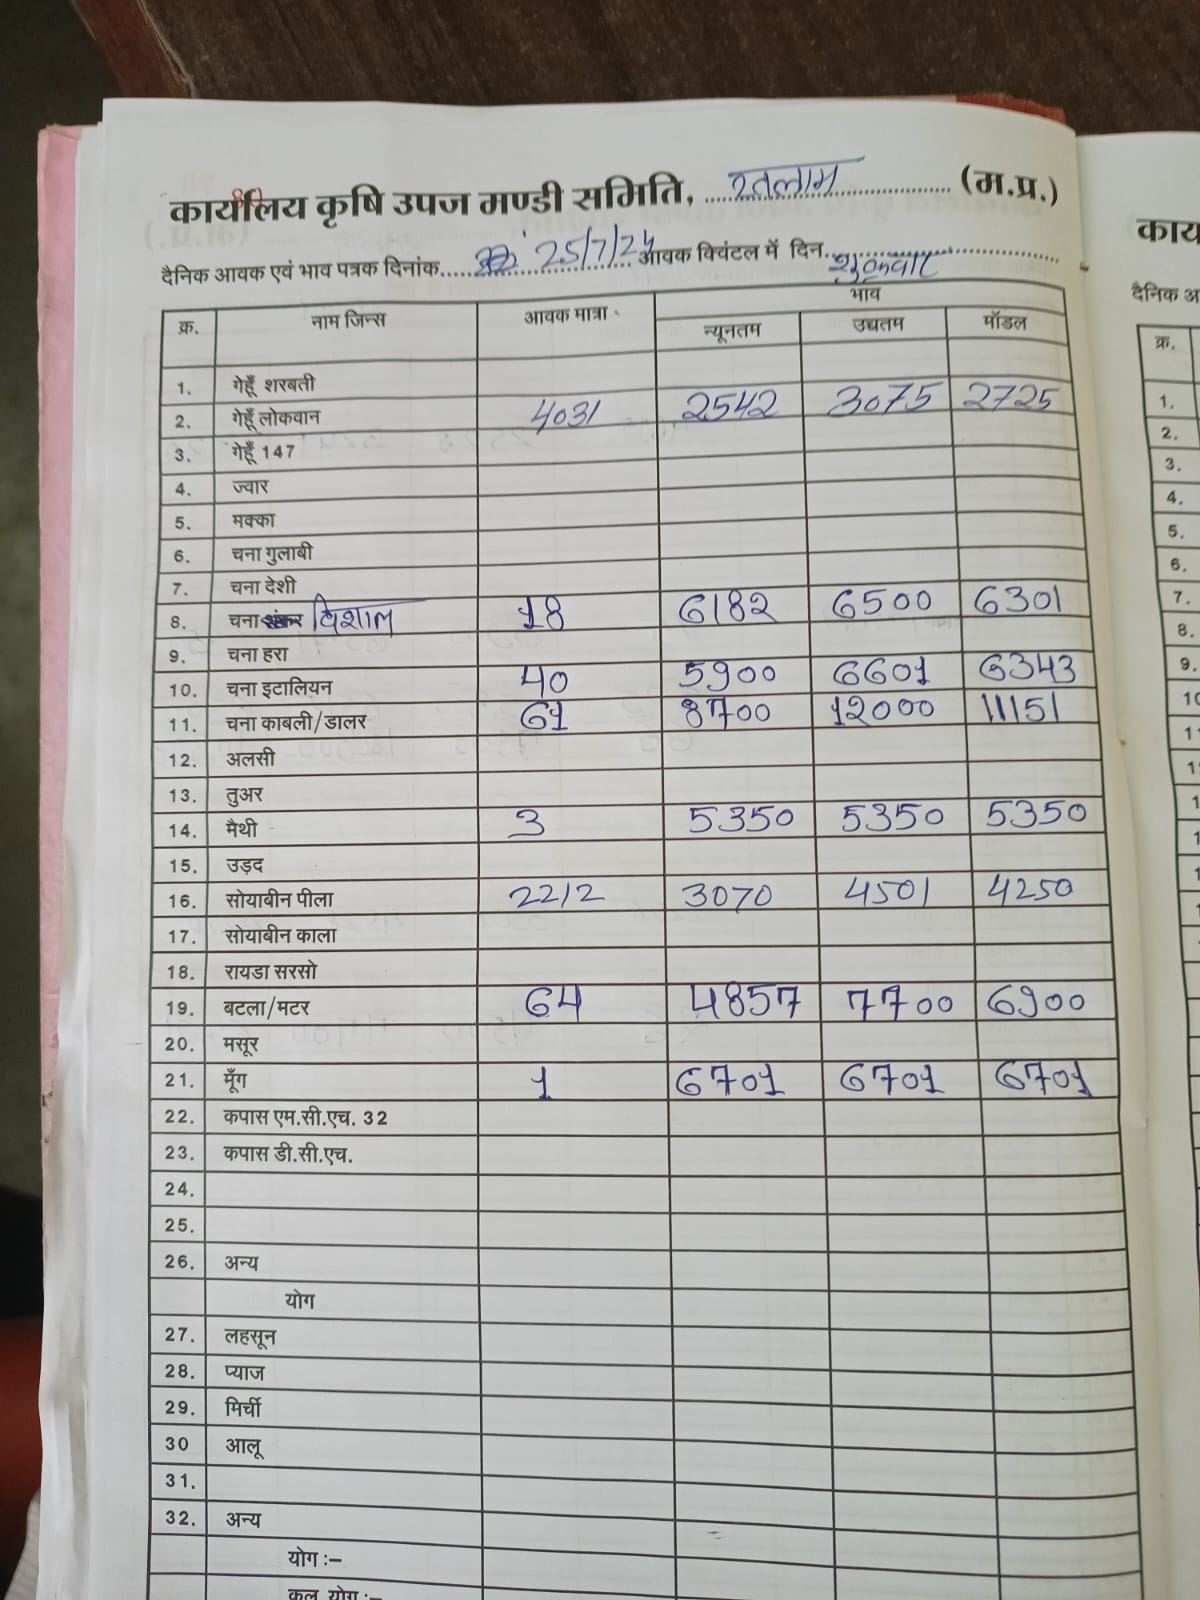 कार्यालय कृषि उपज मण्डी समिति, रतलाम (म.प्र.)
दैनिक आवक एवं भाव पत्रक दिनांक 25/7/24 आवक क्विंटल में दिन शुक्रवार
क्र. नाम जिन्स आवक मात्रा भाव
न्यूनतम उच्चतम मॉडल
1. गेहूँ शरबती
2. गेहूँ लोकवान 4031 2542 3075 2725
3. गेहूँ 147
4. ज्वार
5. मक्का
6. चना गुलाबी
7. चना देशी
8. चना विशाल 18 6182 6500 6301
9. चना हरा
10. चना इटालियन 40 5900 6601 6343
11. चना काबली/डालर 61 8700 12000 11151
12. अलसी
13. तुअर
14. मैथी 3 5350 5350 5350
15. उड़द
16. सोयाबीन पीला 2212 3070 4501 4250
17. सोयाबीन काला
18. रायडा सरसो
19. बटला/मटर 64 4857 7700 6900
20. मसूर
21. मूँग 1 6701 6701 6701
22. कपास एम.सी.एच. 32
23. कपास डी.सी.एच.
24.
25.
26. अन्य
योग
27. लहसून
28. प्याज
29. मिर्ची
30 आलू
31.
32. अन्य
योग :–
कुल योग :–
काय
दैनिक अ
क्र.
1.
2.
3.
4.
5.
6.
7.
8.
9.